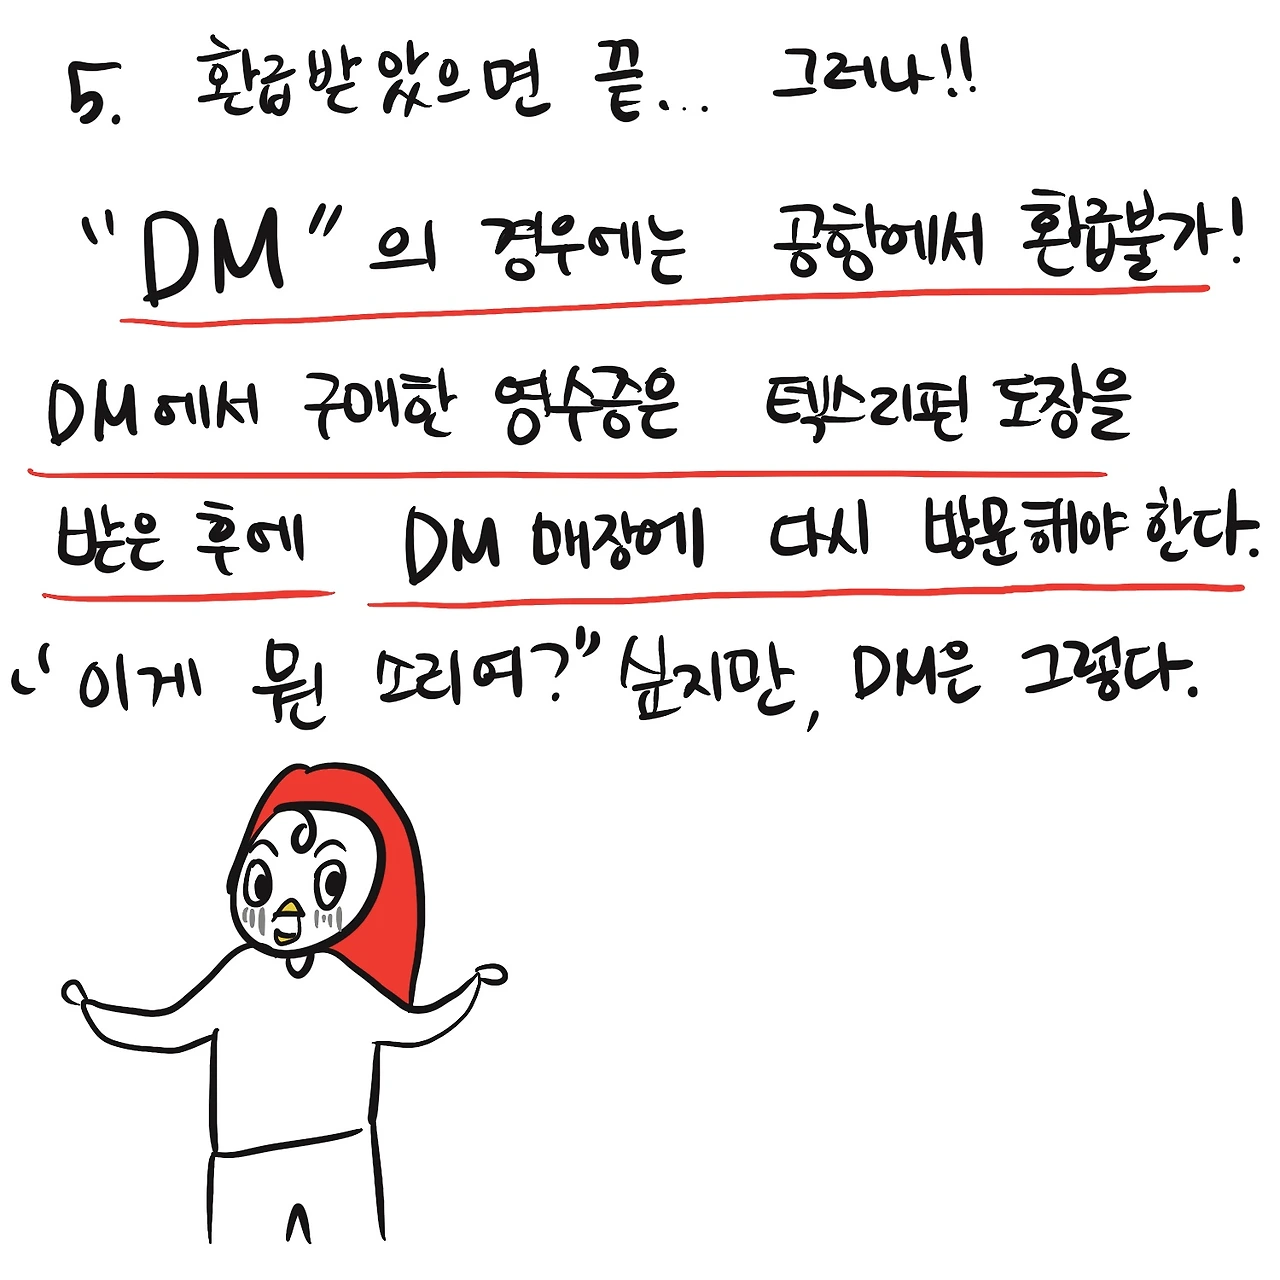 5. 환급받았으면 끝... 그러나!!
"DM"의 경우에는 공항에서 환급불가!
DM에서 구매한 영수증은 텍스리펀 도장을
받은 후에 DM 매장에 다시 방문해야 한다.
"이게 뭔 소리여?" 싶지만, DM은 그렇다.